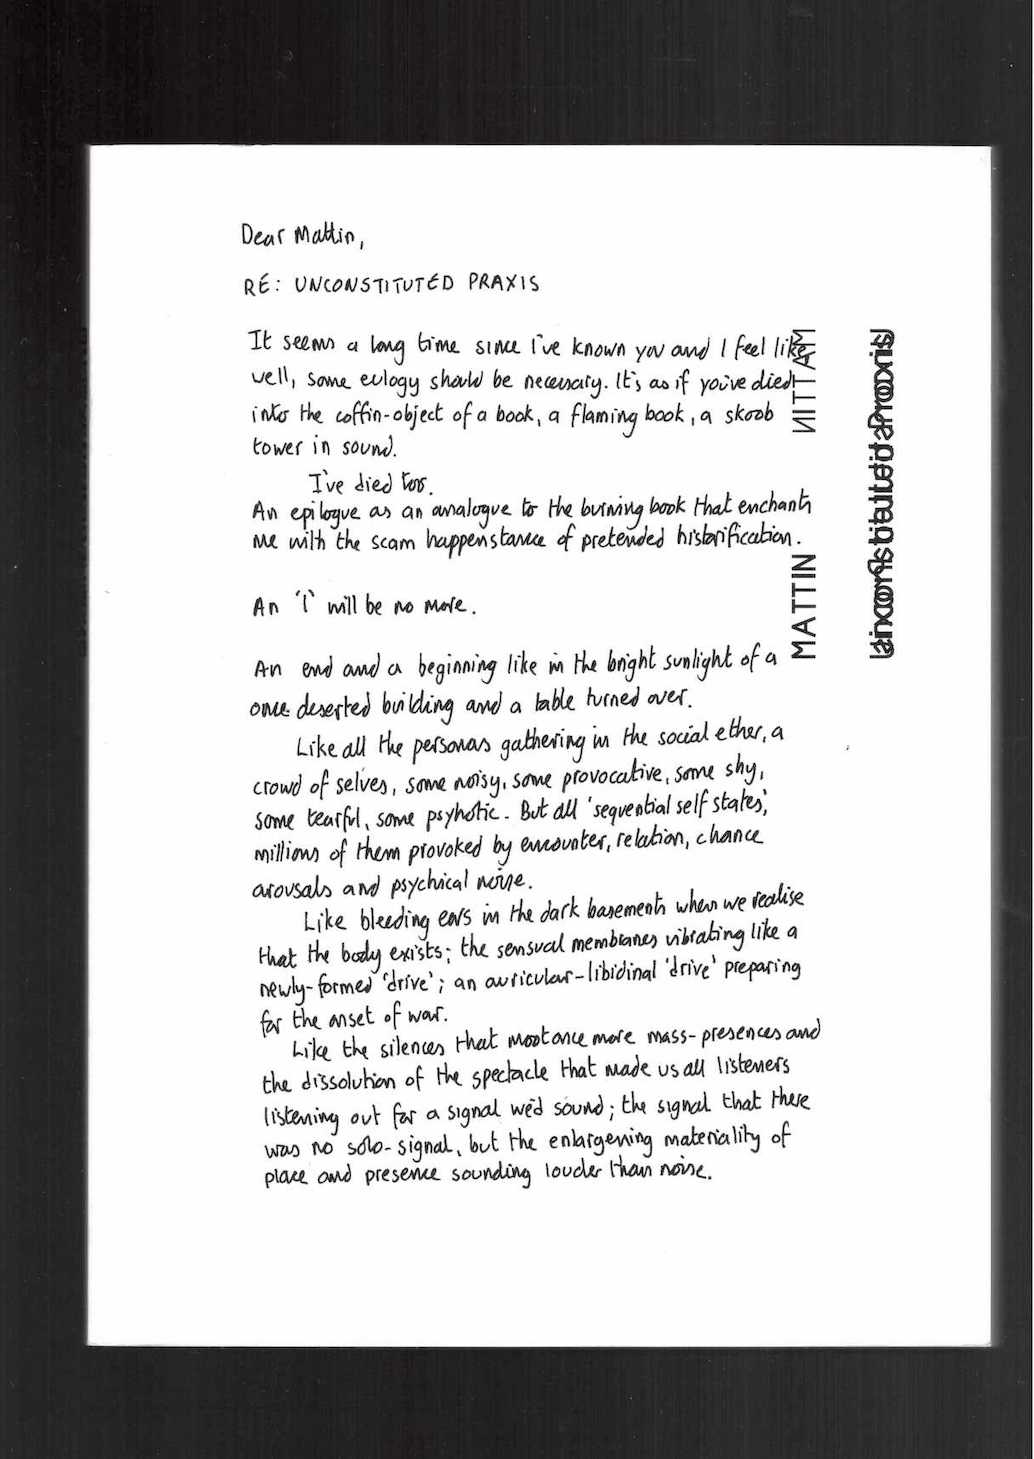 Dear Mattin,
RE: UNCONSTITUTED PRAXIS
It seems a long time since I've known you and I feel like
well, some eulogy should be necessary. It's as if you've died
into the coffin-object of a book, a flaming book, a skoob
tower in sound.
I've died too.
An epilogue as an analogue to the burning book that enchants
me with the scam happenstance of pretended historification.
An 'I' will be no more.
An end and a beginning like in the bright sunlight of a
once deserted building and a table turned over.
Like all the personas gathering in the social ether, a
crowd of selves, some noisy, some provocative, some shy,
some tearful, some psyhotic. But all 'sequential self states',
millions of them provoked by encounter, relation, chance
arousals and psychical noise.
Like bleeding ears in the dark basements when we realise
that the body exists; the sensual membranes vibrating like a
newly-formed 'drive'; an auricular-libidinal 'drive' preparing
for the onset of war.
Like the silences that moot once more mass-presences and
the dissolution of the spectacle that made us all listeners
listening out for a signal we'd sound; the signal that there
was no solo-signal, but the enlargening materiality of
place and presence sounding louder than noise.
MATTIN
MATTIN